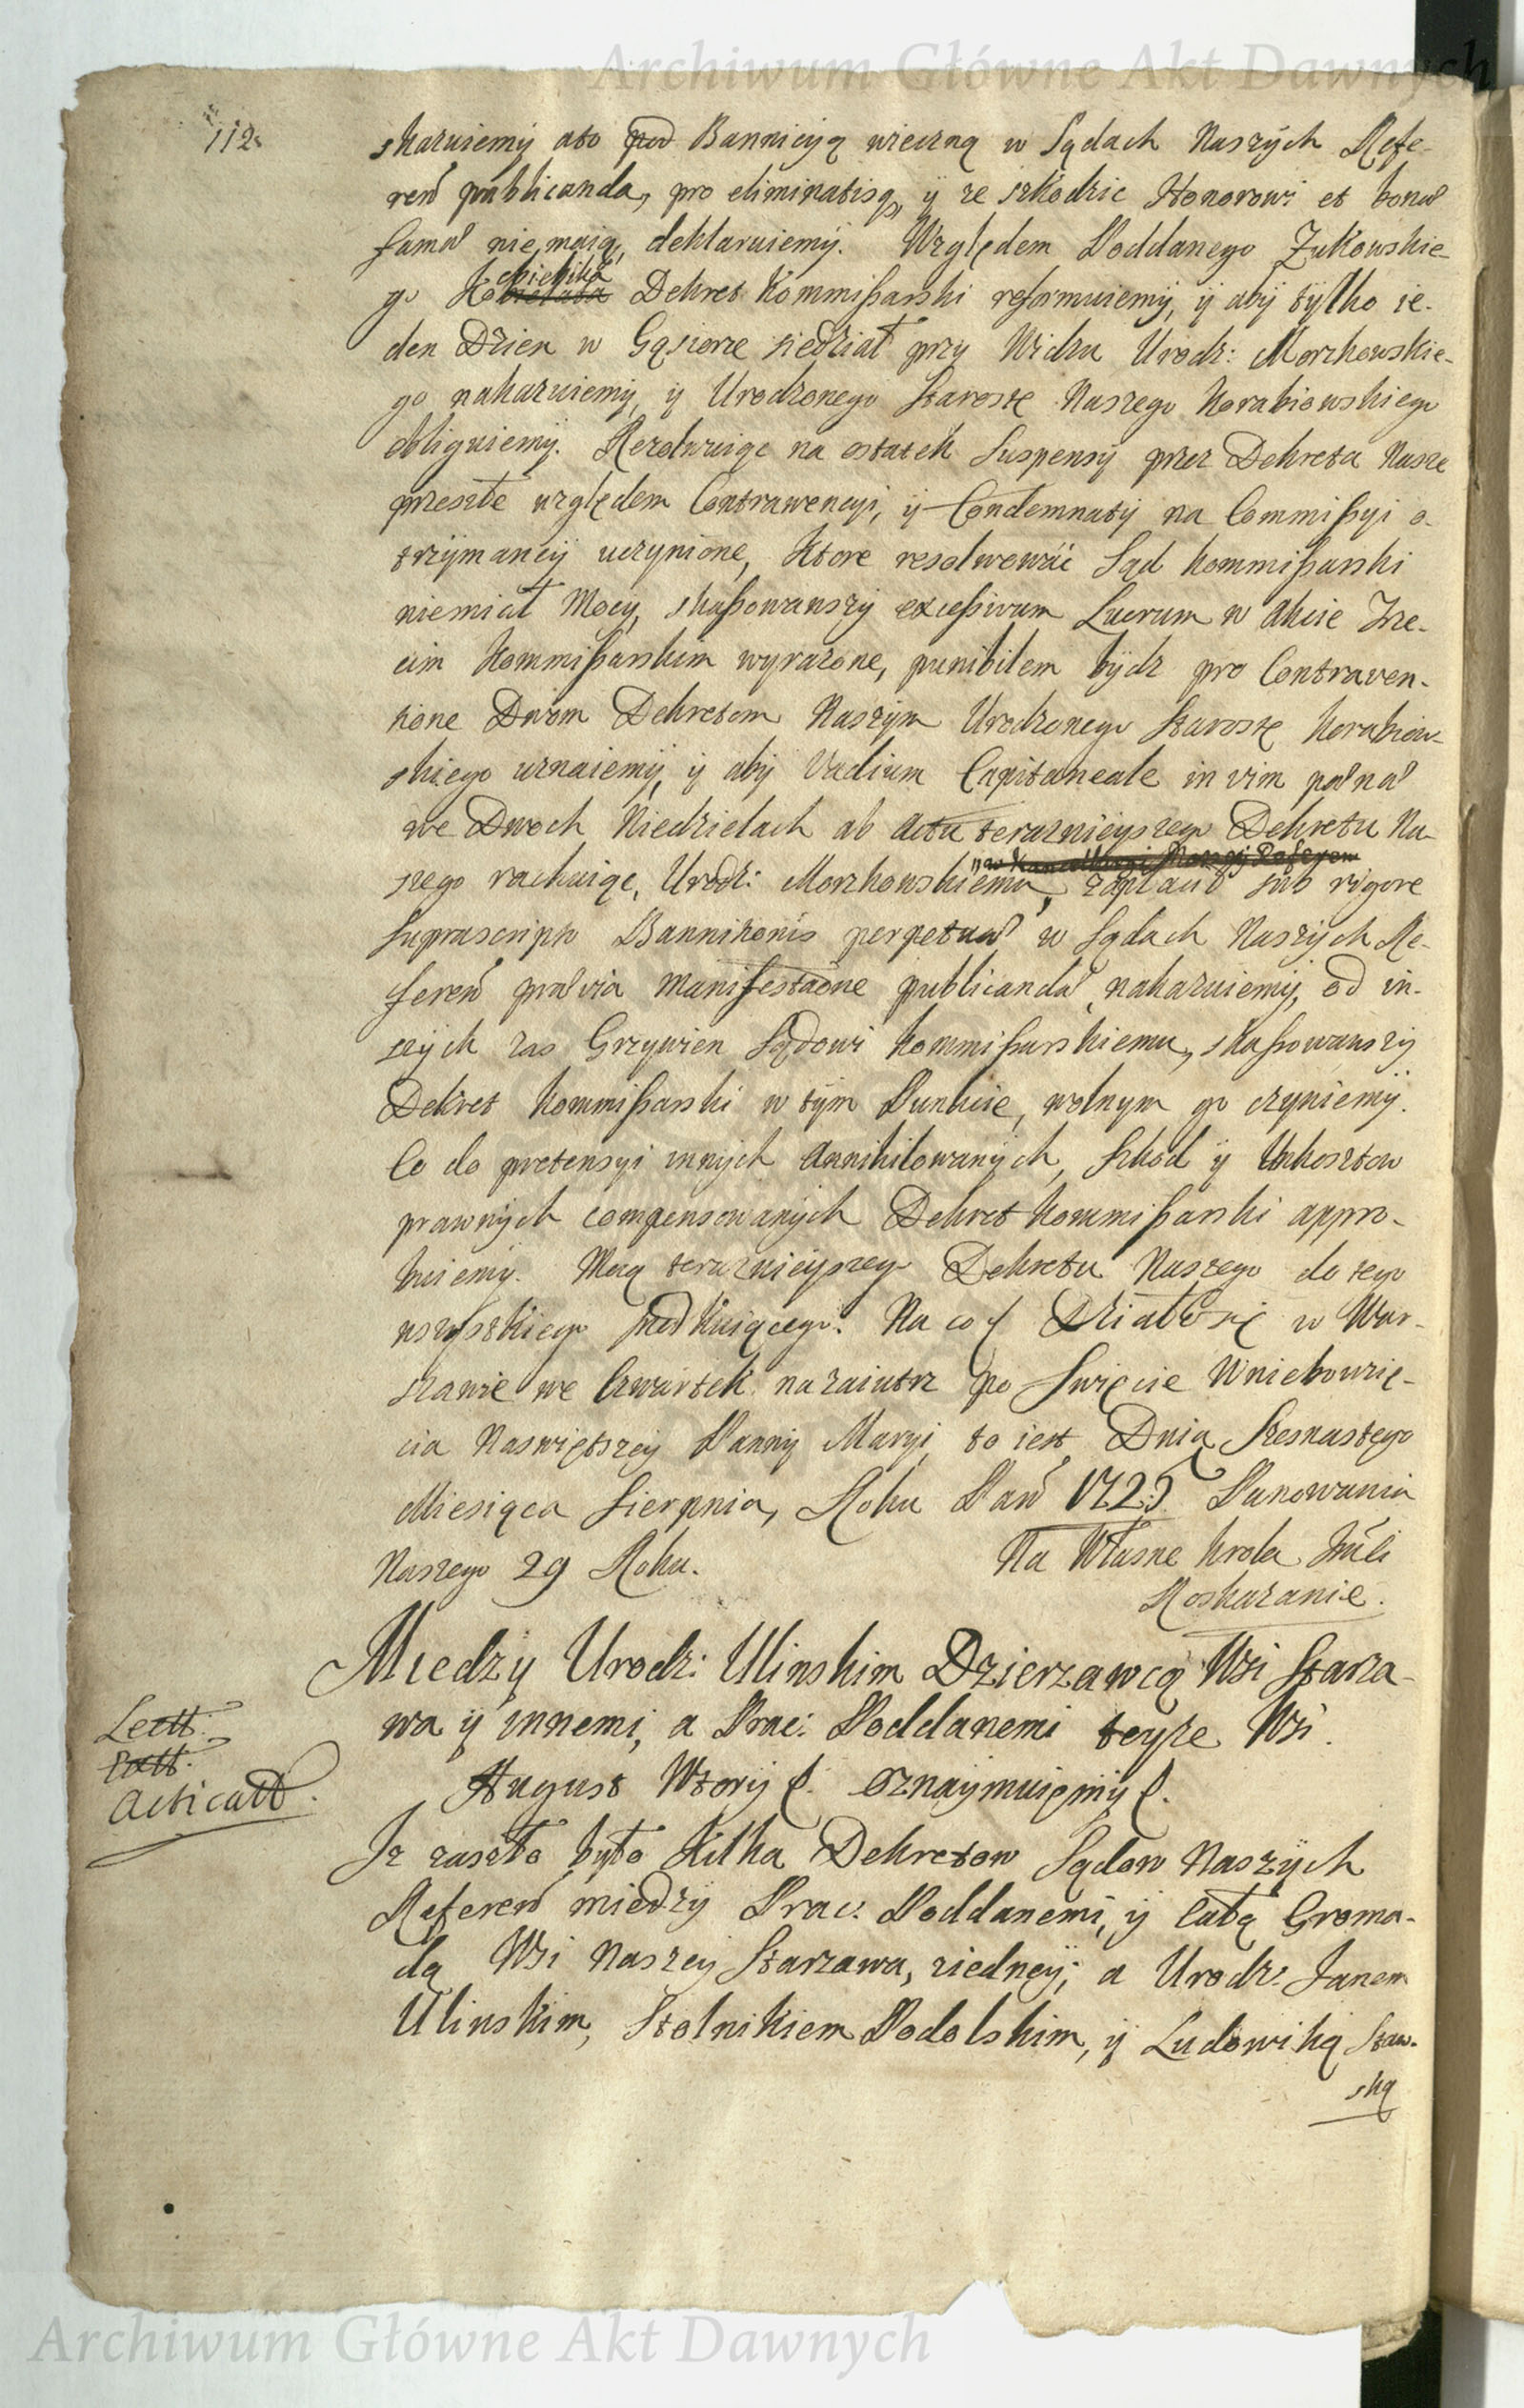 Archiwum Główne Akt Dawnych
112.
skazuiemÿ ato pod Bannicÿą wieczną w Sądach Naszÿch Refe-
ren publicanda, pro eliminatisq, ÿ ze szkodzic Honorowi et bona
fama nie maią, deklaruiemÿ. Względem Poddanego Zukowskie-
go Dekret Kommißarski reformuiemÿ, ÿ abÿ tÿlko ie-
den Dzien w Gąsiorze siedział przy Widzu Urodz: Morzkowskie-
go nakazuiemÿ, ÿ Urodzonego Starostę Naszego Korabiowskiego
obliguiemÿ. Rezolwuiąc na ostatek Suspensÿ przez Dekreta Nasze
przeszłe względem Contrawencyi, ÿ Condemnatÿ na Commißyi o-
trzÿmaneÿ uczynione, ktore resolwowác Sąd Kommißarski
niemiał Mocy, skaßowawszÿ exceßivum Lucrum w Akcie Trze-
cim Kommißarskim wyrazone, punibilem bÿdz pro Contraven-
tione Dwom Dekretom Naszÿm Urodzonego Starostę Korabiow-
skiego uznaiemÿ, ÿ abÿ Vadium Capitaneale in vim pœnæ
we Dwoch Niedzielach ab actu teraznieyszego Dekretu Na-
w Kancellaryi Naszeÿ Referen
szego rachuiąc, Urodz: Morzkowskiemu, zapłacił sub rigore
suprascriptæ Bannitionis perpetuæ w Sądach Naszÿch Re-
feren prævia manifestaone publicandæ, nakazuiemÿ, od in-
szÿch zas Grzywien Sądowi Kommißarskiemu, skaßowawszÿ
Dekret Kommißarski w tÿm Punkcie, wolnym go czyniemÿ.
Co do pretensyi innÿch Annihilowanÿch, Szkod ÿ Unkosztow
prawnÿch compensowanÿch Dekret Kommißarski appro-
buiemÿ. Mocą teraznieyszego Dekretu Naszego do tego
wszystkiego. Na co Działo się w War-
szawie we Czwartek nazaiutrz po Swięcie Wniebowzię-
cia Naswiętszeÿ Pannÿ Maryi, to iest Dnia Szesnastego
Miesiąca Sierpnia, Roku Pań 1725 Panowania
Naszego 29 Roku.
Na Własne Krola Jmći
Roskazanie.
Miedzÿ Urodz: Ulinskim Dzierzawcą Wsi Starza-
wa ÿ innemi, a Prac: Poddanemi teyze Wsi.
Lectt.
Acticatt.
August Wtorÿ. Oznaymuiemÿ.
Iz zaszło było kilka Dekretow Sądow Naszÿch
Referen miedzÿ Prac. Poddanemi, ÿ całą Groma-
dą Wsi Naszeÿ Starzawa, ziedneÿ, a Urodz: Janem
Ulinskim, Stolnikiem Podolskim, ÿ Ludowiką Staw-
ską
Archiwum Główne Akt Dawnych